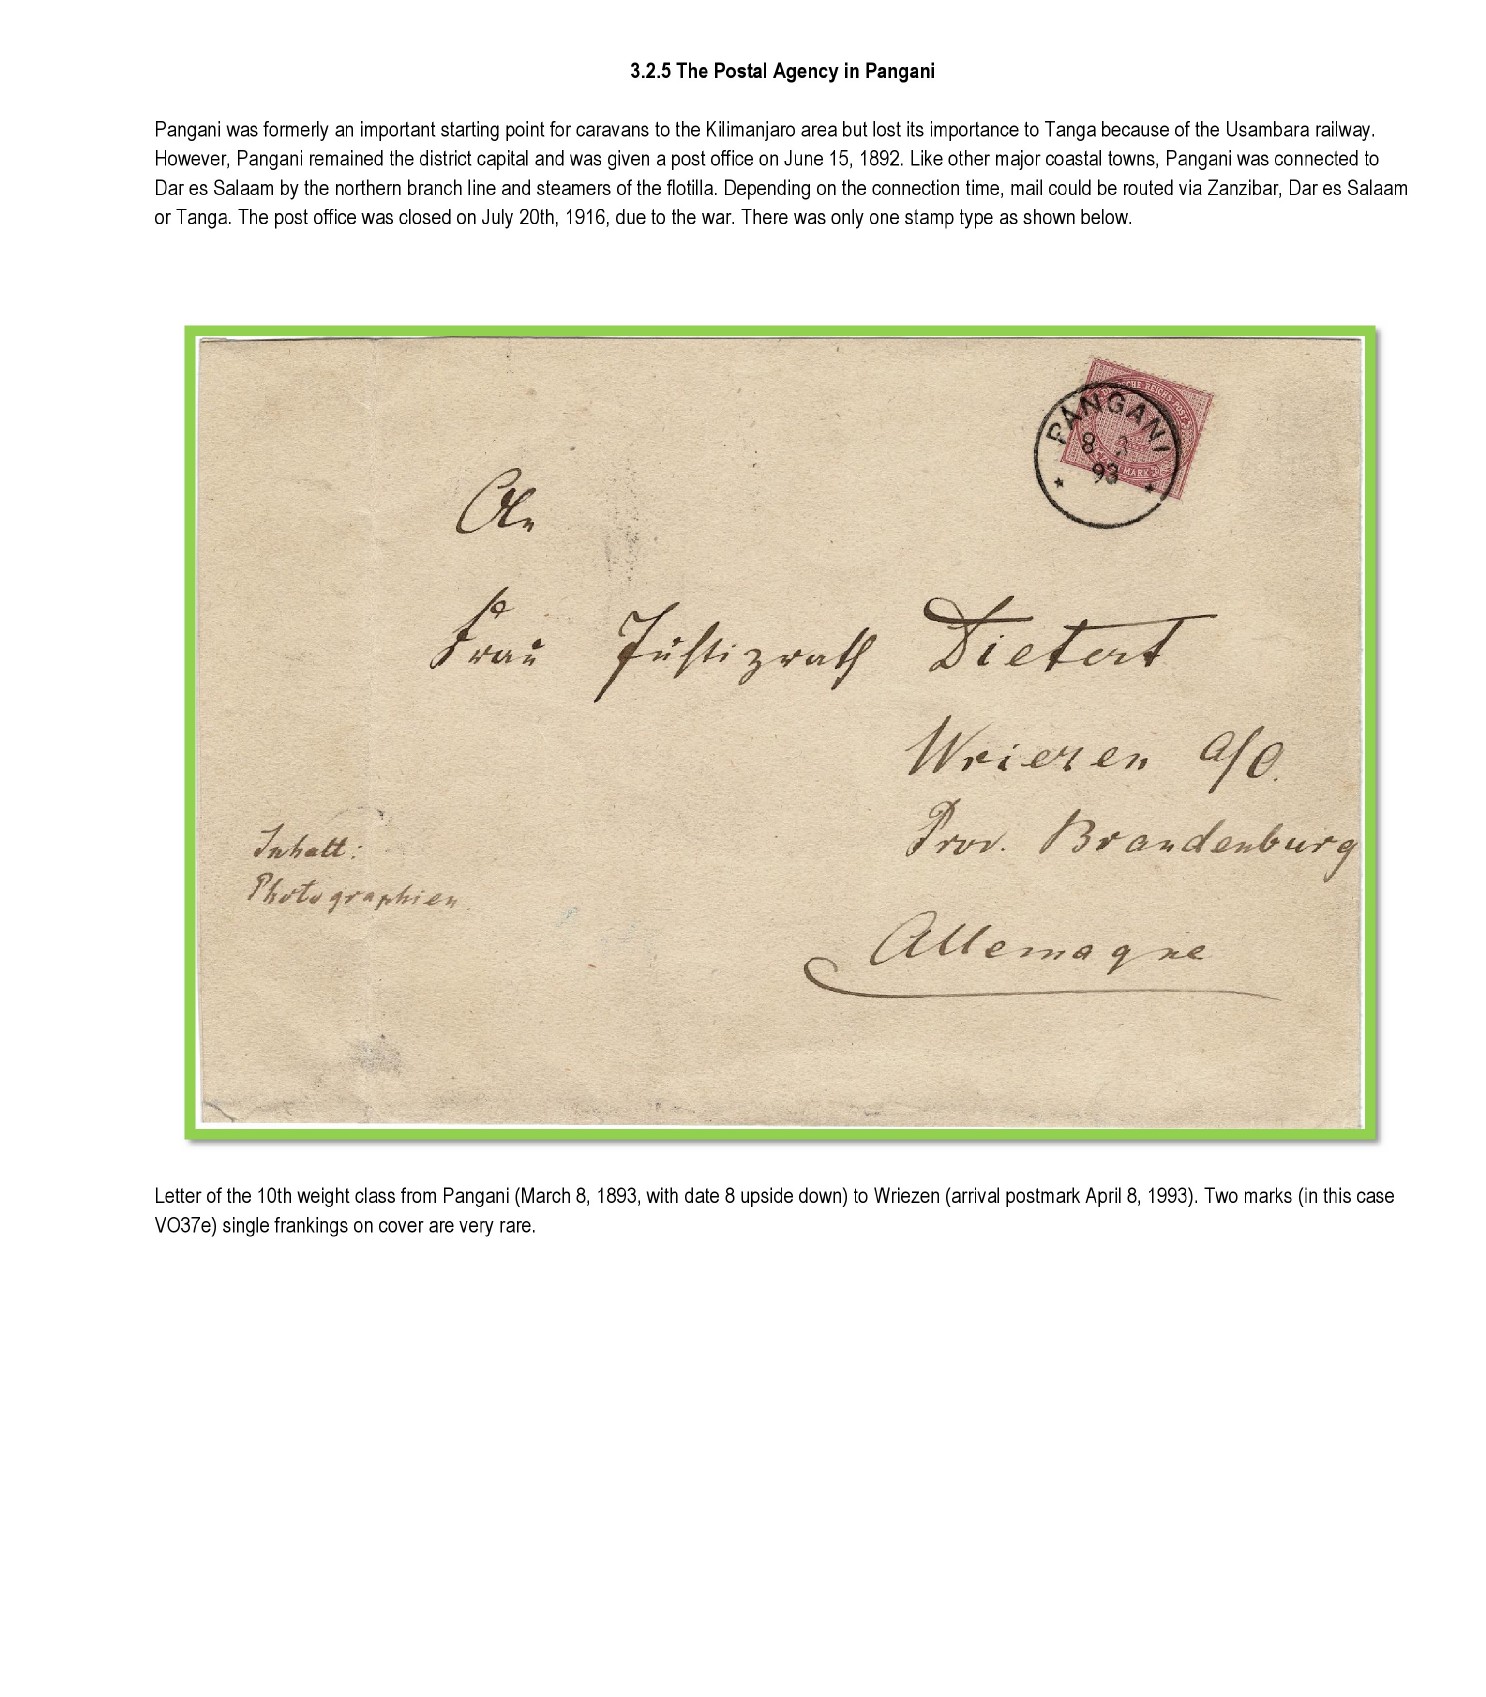 3.2.5 The Postal Agency in Pangani
Pangani was formerly an important starting point for caravans to the Kilimanjaro area but lost its importance to Tanga because of the Usambara railway.
However, Pangani remained the district capital and was given a post office on June 15, 1892. Like other major coastal towns, Pangani was connected to
Dar es Salaam by the northern branch line and steamers of the flotilla. Depending on the connection time, mail could be routed via Zanzibar, Dar es Salaam
or Tanga. The post office was closed on July 20th, 1916, due to the war. There was only one stamp type as shown below.
REICHS-POST
MARK
PANGANI
8 3
93
An
Frau Justizrath Dietert
Wriezen a/O.
Prov. Brandenburg
Allemagne
Inhalt:
Photographien
Letter of the 10th weight class from Pangani (March 8, 1893, with date 8 upside down) to Wriezen (arrival postmark April 8, 1993). Two marks (in this case
VO37e) single frankings on cover are very rare.